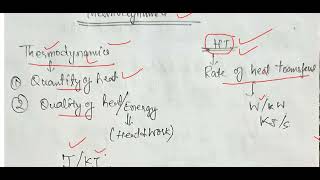 Thermodynamics
HT
Thermodynamics
① Quantity of heat
② Quality of heat/Energy
(Heat & Work)
J/KJ
Rate of heat transfer
W/kW
KJ/s